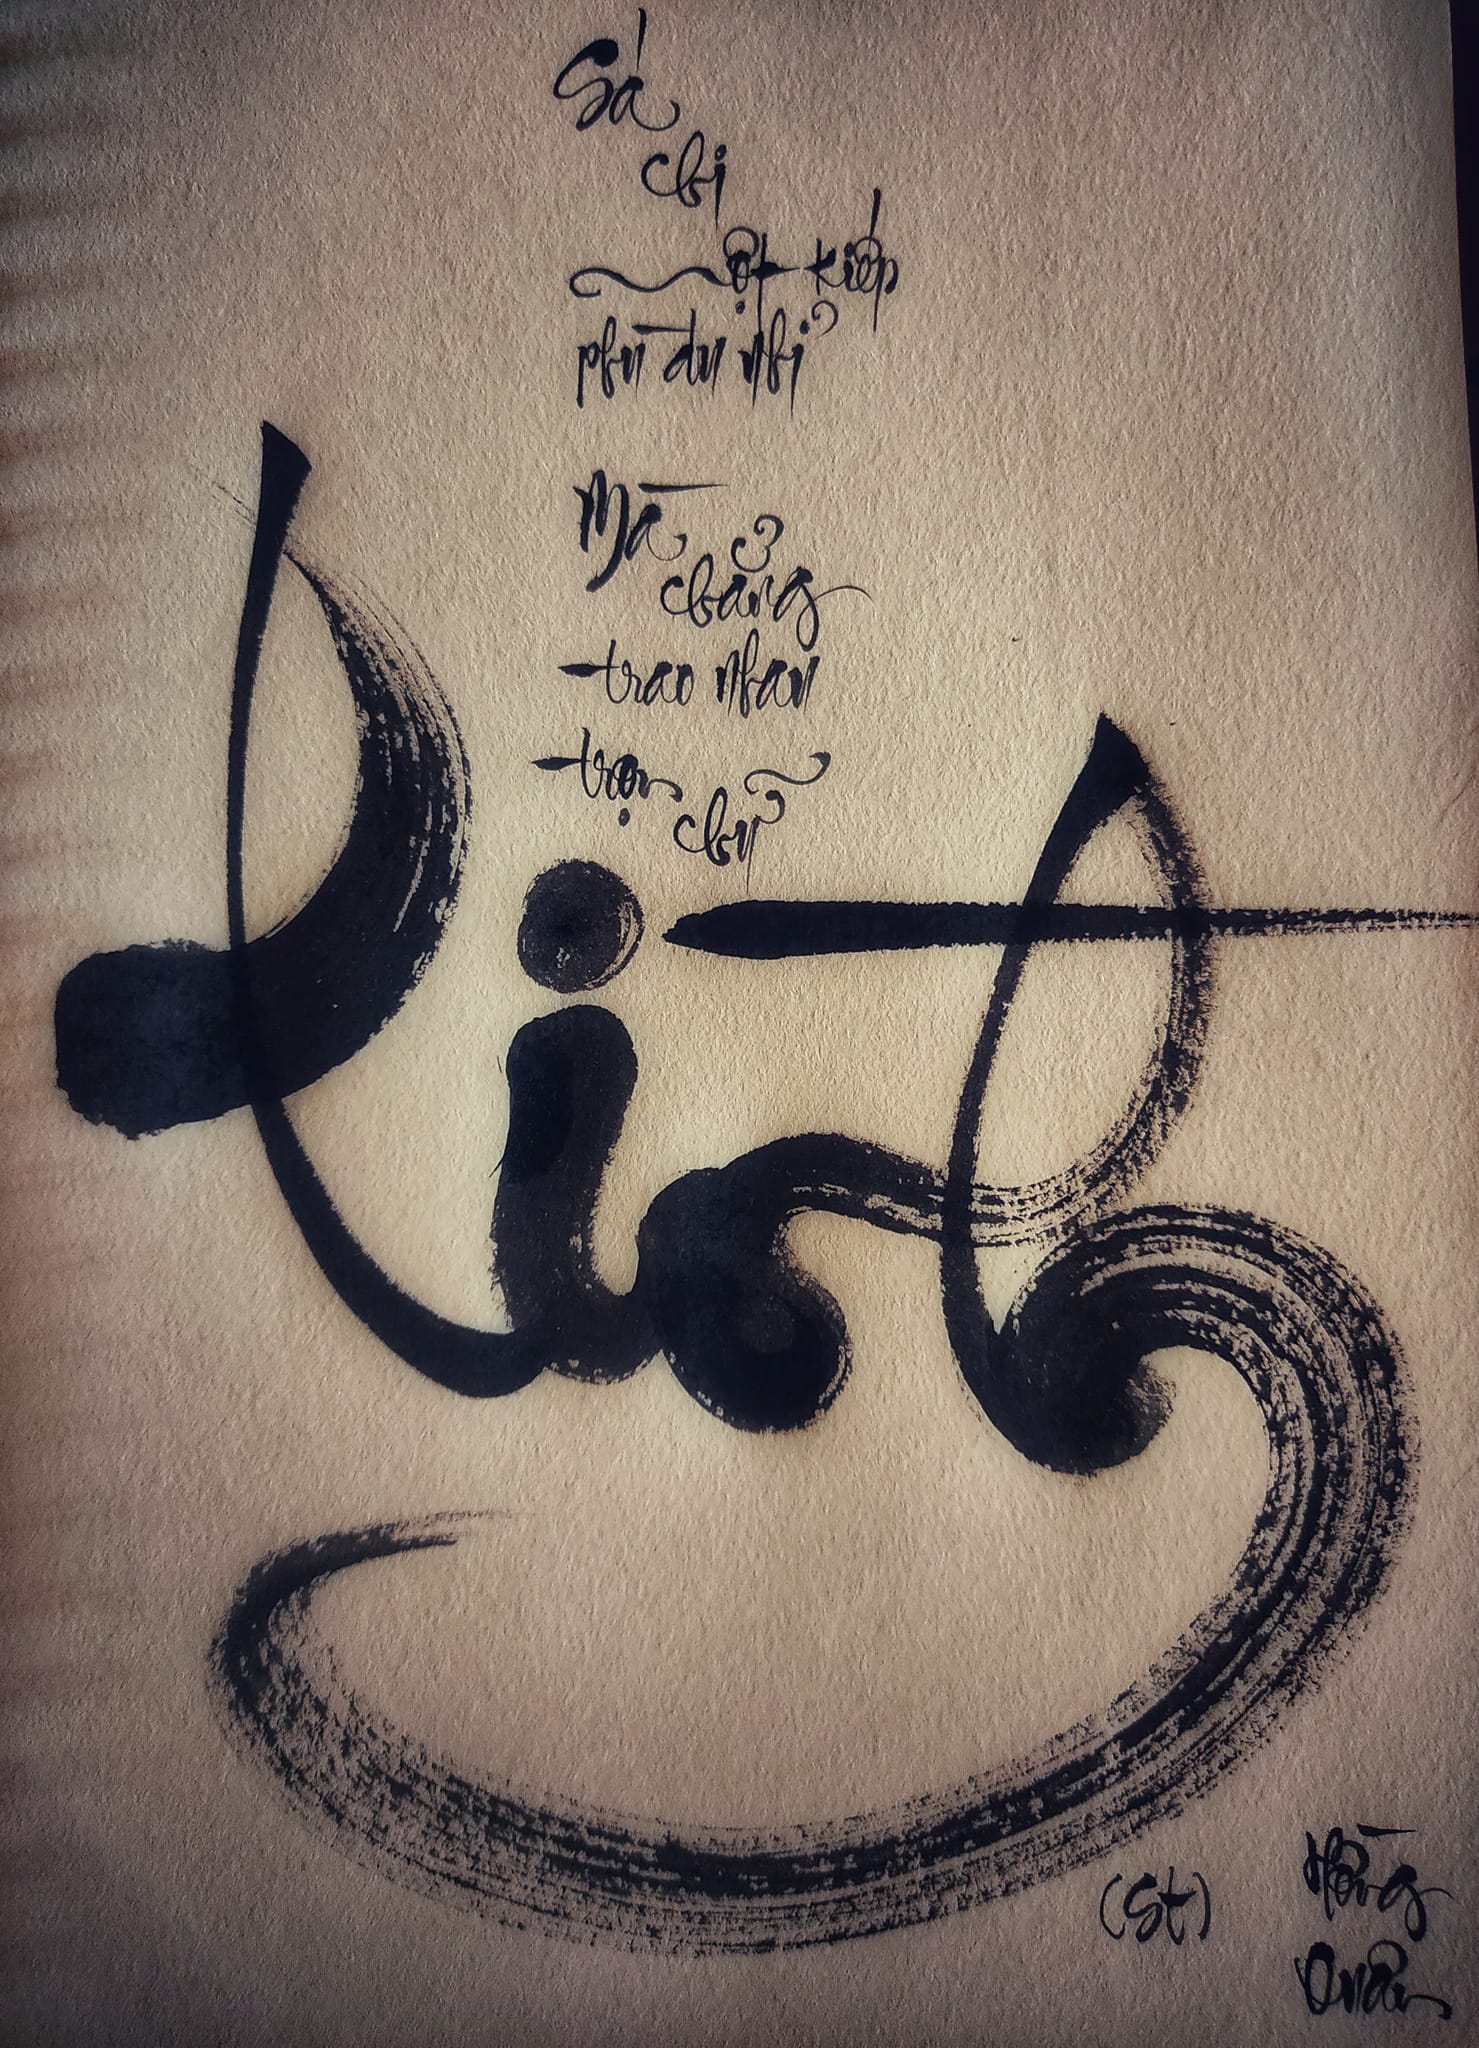 Sá
chi
một kiếp
phù du nhỉ
Mà
chẳng
trao nhau
trọn
chữ
Tình
(St)
Hồng
Quân